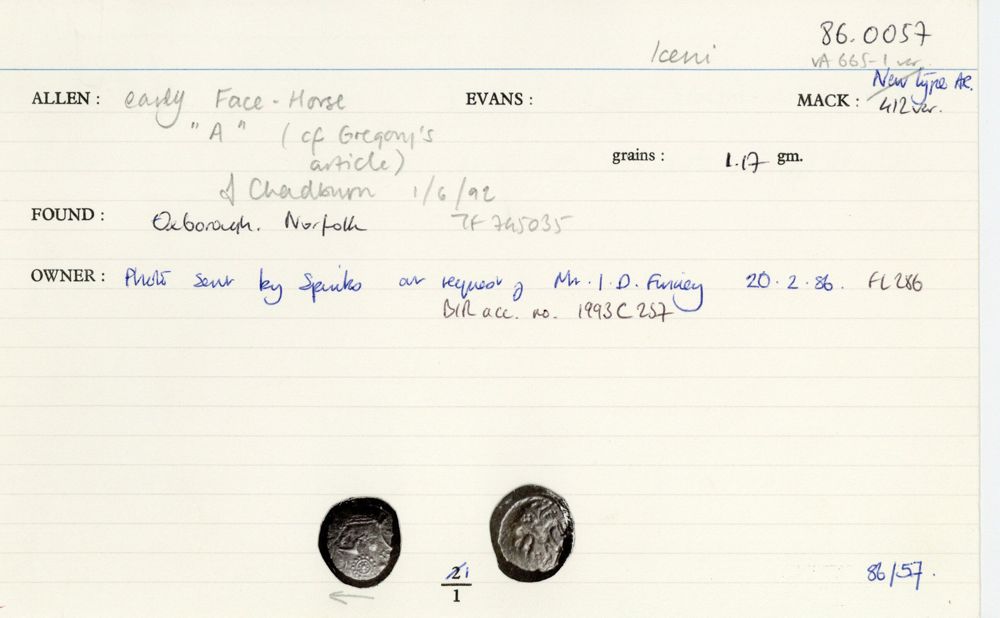 Iceni 86.0057
VA 665-1 var.
New type AR.
ALLEN : early Face-Horse EVANS : MACK : 412 var.
"A" (cf Gregory's
article) grains : 1.17 gm.
J Chadburn 1/6/92
FOUND : Oxborough. Norfolk TF 745035
OWNER : Photo sent by Spinks at request of Mr. I. D. Finney 20.2.86. FL 286
BIR acc. no. 1993 C 257
21
1
86/57.